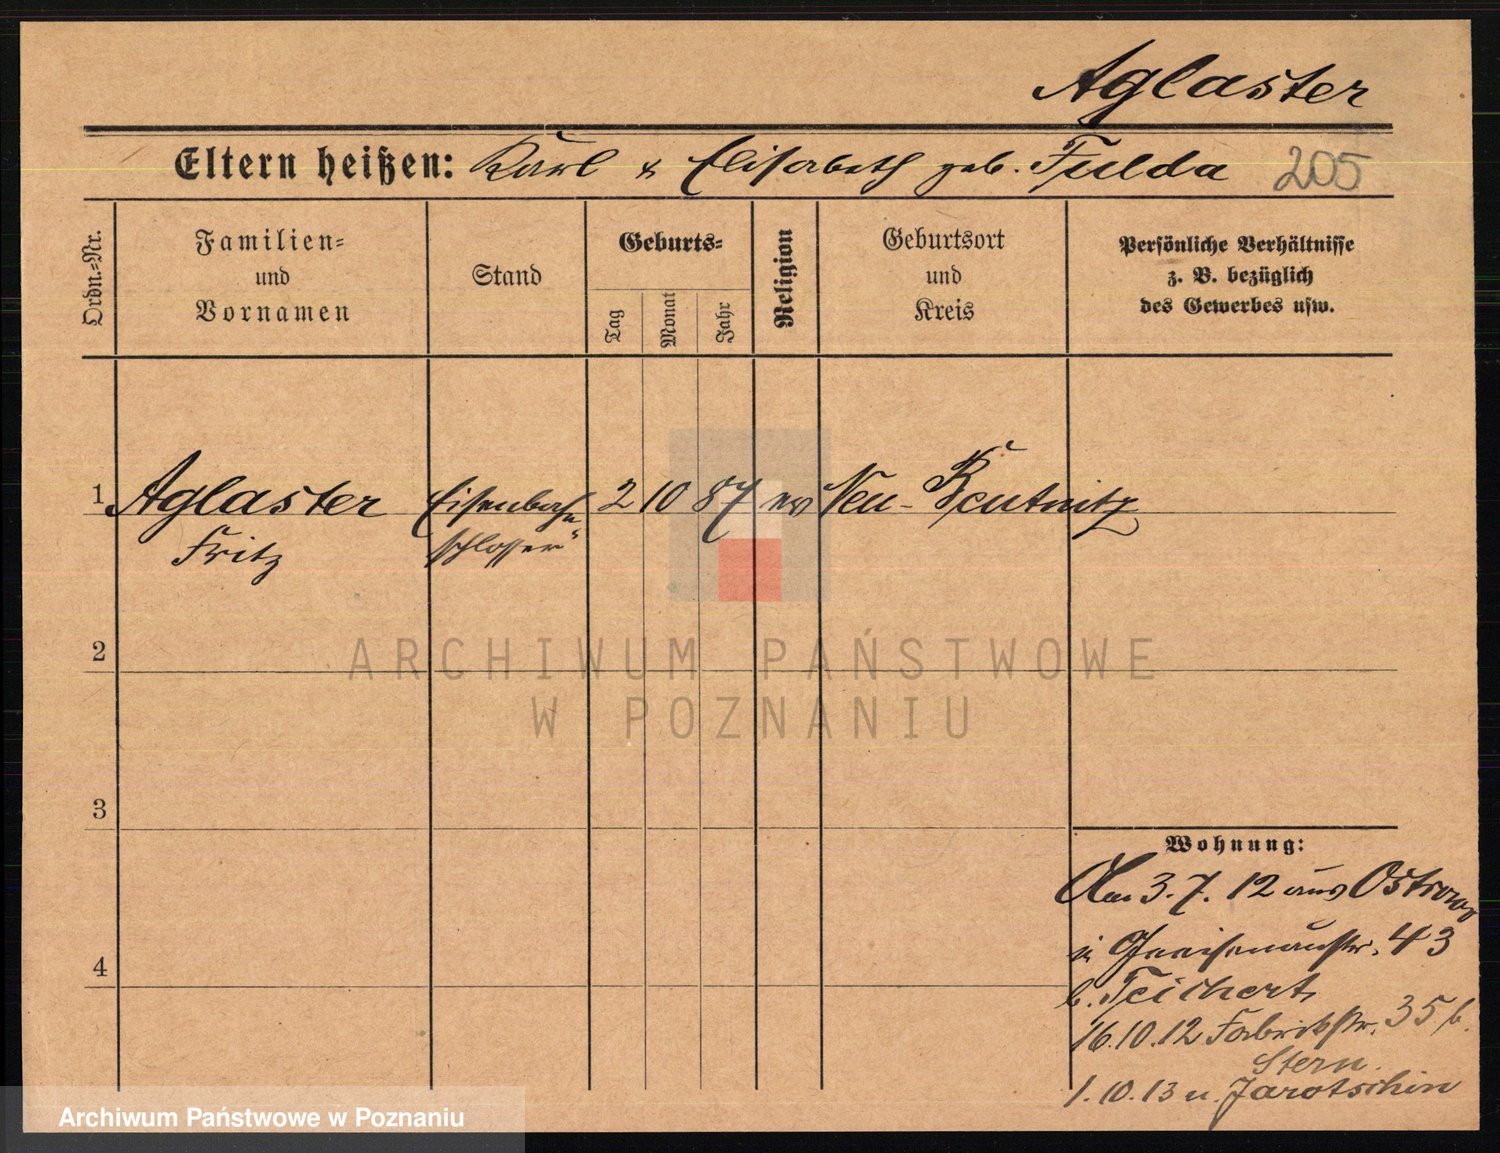 Aglaster
Eltern heißen: Karl & Elisabeth geb. Fulda 205
Ordn.-Nr.
Familien-
und
Vornamen
Stand
Geburts-
Tag
Monat
Jahr
Religion
Geburtsort
und
Kreis
Persönliche Verhältnisse
z. B. bezüglich
des Gewerbes usw.
1 Aglaster Eisenbahn 2 10 87 ev Neu-Reutnitz
Fritz schlosser
2
ARCHIWUM PAŃSTWOWE
W POZNANIU
3
Wohnung:
Am 3.7.12 aus Ostrowo
in Gneisenaustr. 43
b. Teichert
4
16.10.12 Fabrikstr. 35 b.
Stern.
1.10.13 n. Jarotschin
Archiwum Państwowe w Poznaniu